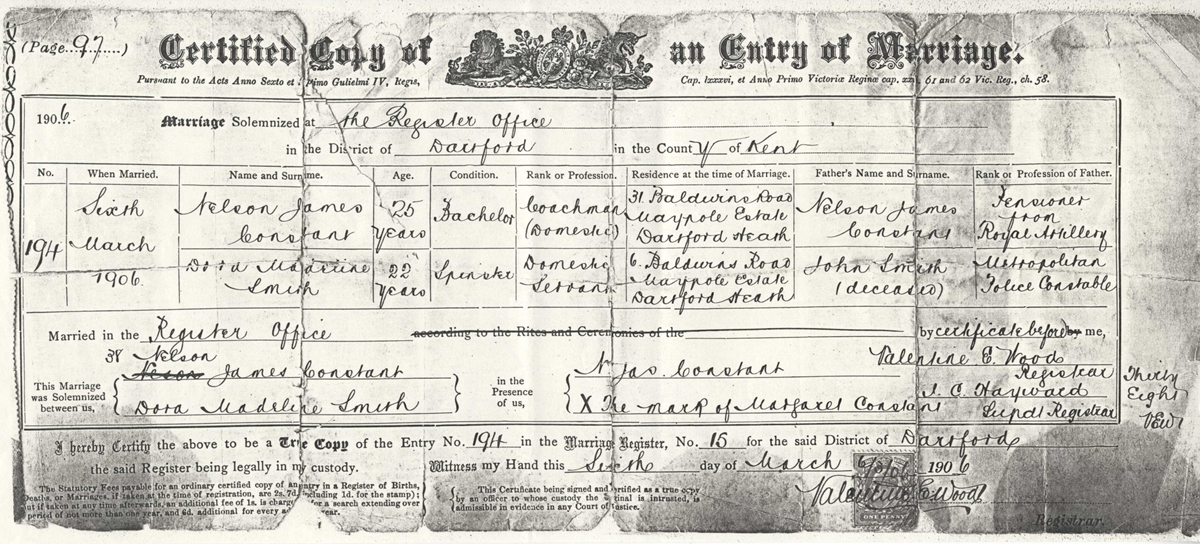 (Page 97)
Certified Copy of an Entry of Marriage.
Pursuant to the Acts Anno Sexto et Primo Gulielmi IV, Regis, Cap. lxxxvi, et Anno Primo Victoriæ Reginæ cap. 61 and 62 Vic. Reg., ch. 58.
1906. Marriage Solemnized at the Register Office
in the District of Dartford in the County of Kent
No. When Married. Name and Surname. Age. Condition. Rank or Profession. Residence at the time of Marriage. Father's Name and Surname. Rank or Profession of Father.
194 Sixth March 1906 Nelson James Constant 25 years Bachelor Coachman (Domestic) 31 Baldwins Road Maypole Estate Dartford Heath Nelson James Constant Pensioner from Royal Artillery
Dora Madeline Smith 22 years Spinster Domestic Servant 6. Baldwins Road Maypole Estate Dartford Heath John Smith (deceased) Metropolitan Police Constable
Married in the Register Office according to the Rites and Ceremonies of the by certificate before by me,
38 Nelson
Neson James Constant
Dora Madeline Smith
This Marriage was Solemnized between us,
in the Presence of us,
N Jas. Constant
X The mark of Margaret Constant
Valentine E. Wood
Registrar
J. C. Hayward
Supdt Registrar
Thirty Eight
VEW
I hereby Certify the above to be a True Copy of the Entry No. 194 in the Marriage Register, No. 15 for the said District of Dartford
the said Register being legally in my custody.
Witness my Hand this Sixth day of March 1906
6/3/06
Valentine E. Wood
Registrar.
The Statutory Fees payable for an ordinary certified copy of an entry in a Register of Births,
Deaths, or Marriages, if taken at the time of registration, are 2s. 7d. (including 1d. for the stamp);
but if taken at any time afterwards, an additional fee of 1s. is charged for a search extending over
period of not more than one year, and 6d. additional for every additional year.
This Certificate being signed and certified as a true copy
by an officer to whose custody the original is intrusted, is
admissible in evidence in any Court of Justice.
ONE PENNY